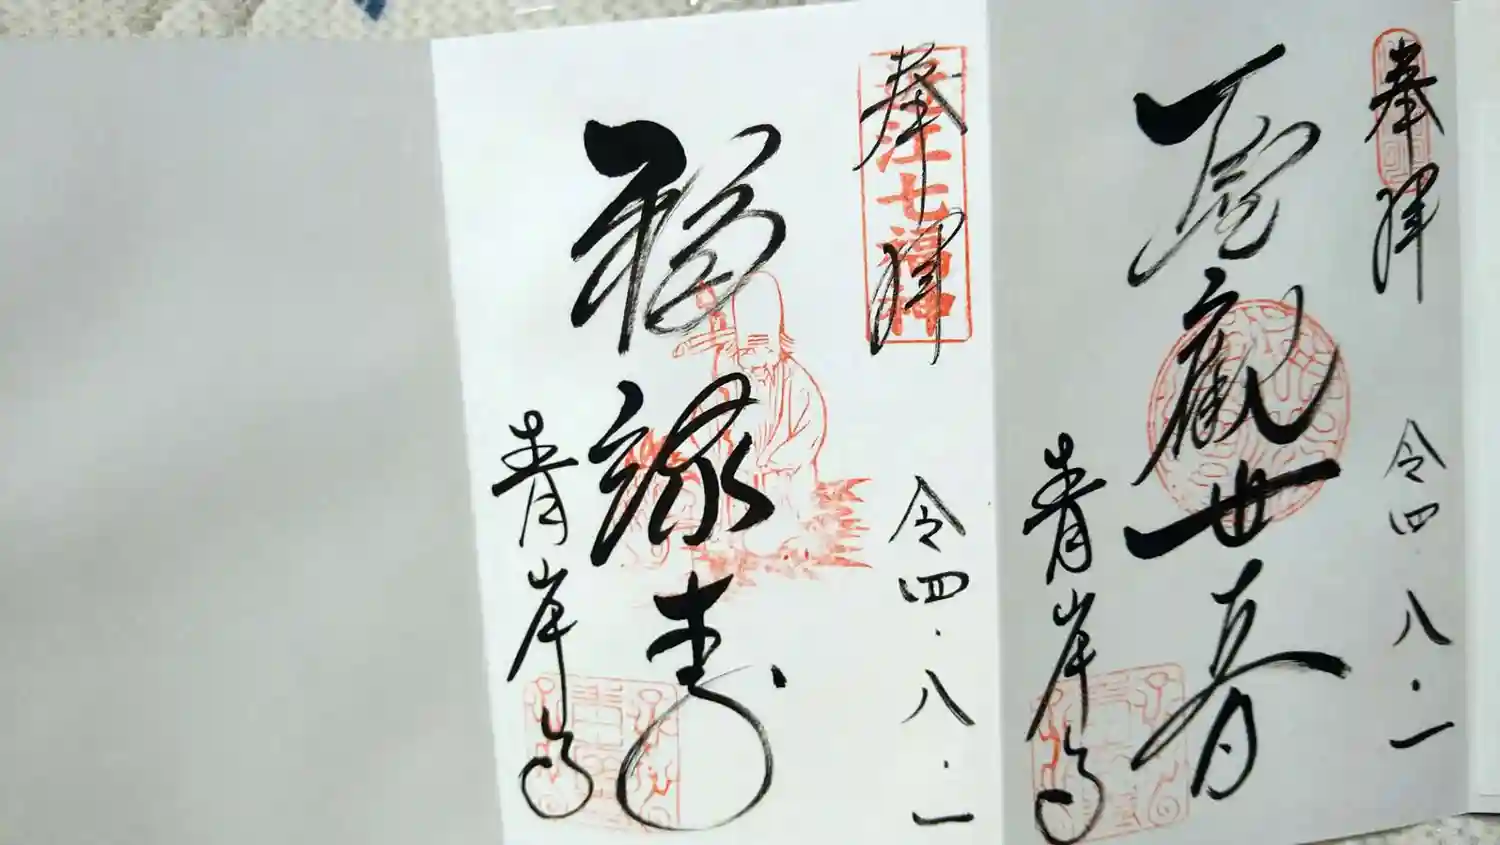 奉拝
令四.八.一
聖觀世音
青岸寺
奉拝
近江七福神
令四.八.一
福禄寿
青岸寺